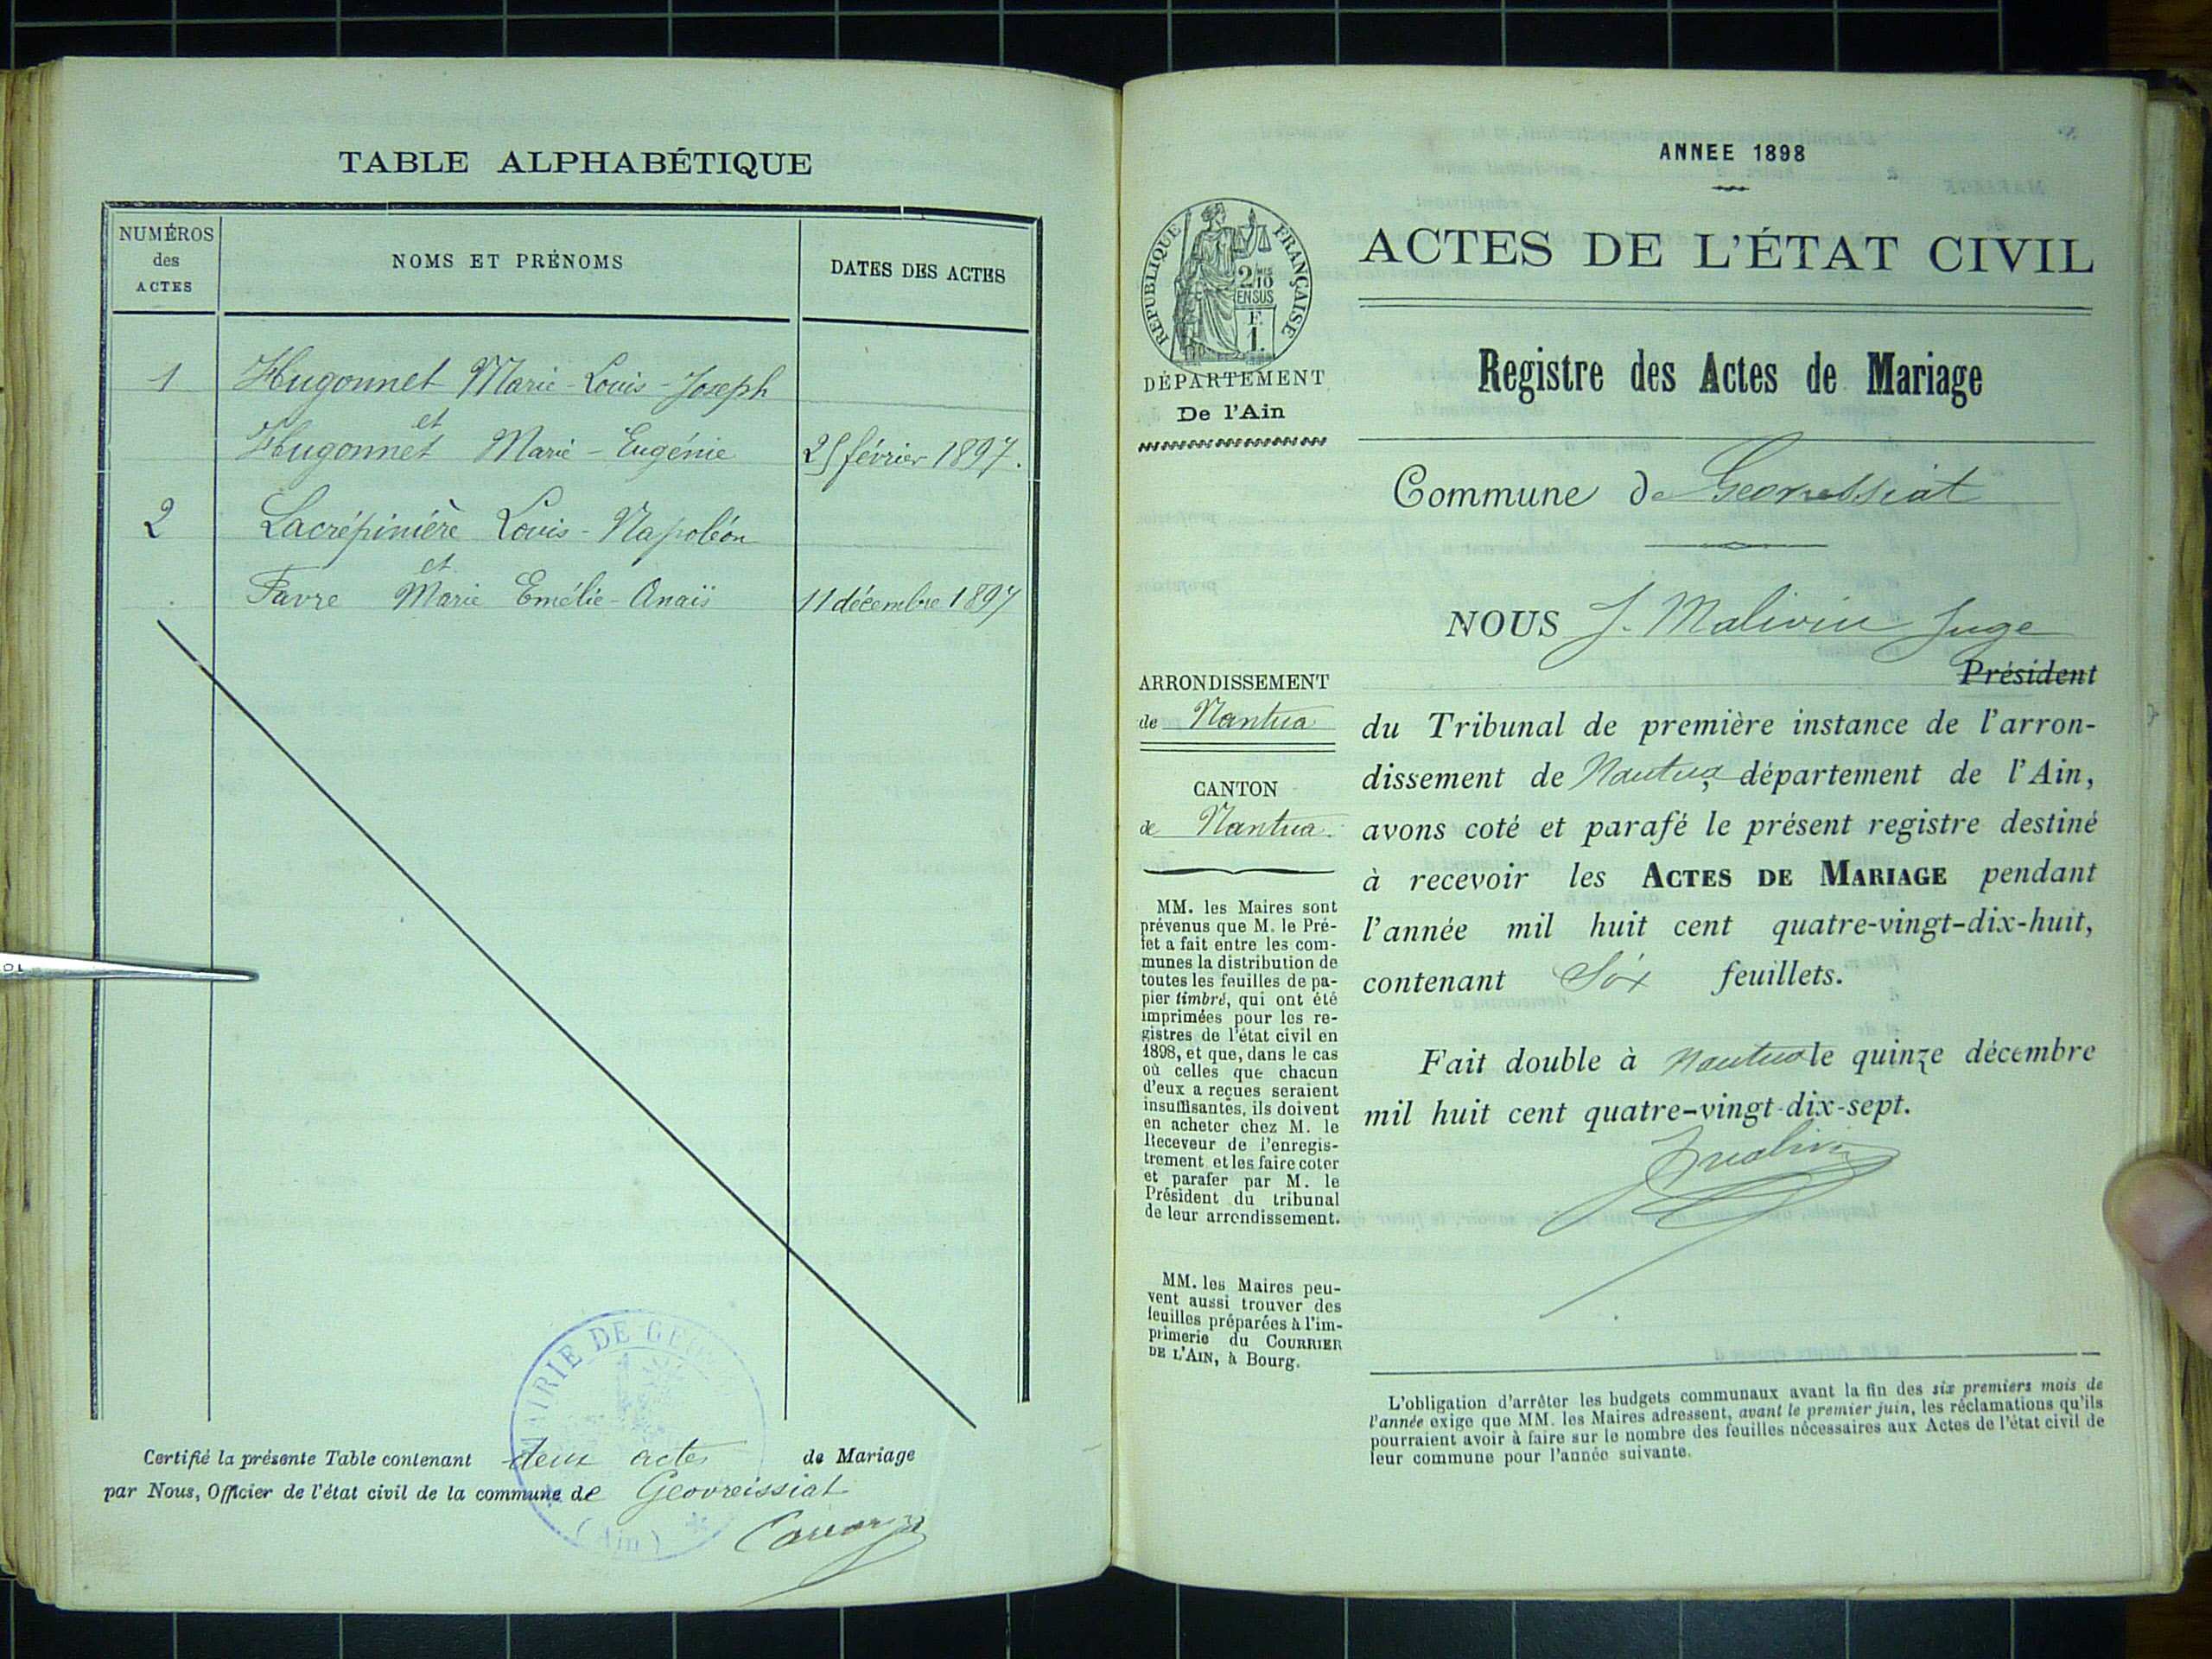 TABLE ALPHABÉTIQUE
NUMÉROS des ACTES
NOMS ET PRÉNOMS
DATES DES ACTES
1 Hugonnet Marie-Louis-Joseph
et
Hugonnet Marie-Eugénie 25 février 1897.
2 Lacrépinière Louis-Napoléon
et
Favre Marie Emélie-Anaïs 11 décembre 1897
Certifié la présente Table contenant deux actes de Mariage
par Nous, Officier de l'état civil de la commune de Geovreissiat
MAIRIE DE
(Ain)
ANNEE 1898
ACTES DE L'ÉTAT CIVIL
RÉPUBLIQUE FRANÇAISE
2/10
EN SUS
F.
1.
DÉPARTEMENT
De l'Ain
Registre des Actes de Mariage
Commune de Geovreissiat
NOUS J. Malivin Juge
Président
ARRONDISSEMENT
de Nantua
CANTON
de Nantua.
du Tribunal de première instance de l'arron-
dissement de Nantua, département de l'Ain,
avons coté et parafé le présent registre destiné
à recevoir les ACTES DE MARIAGE pendant
l'année mil huit cent quatre-vingt-dix-huit,
contenant Six feuillets.
Fait double à Nantua le quinze décembre
mil huit cent quatre-vingt-dix-sept.
MM. les Maires sont
prévenus que M. le Pré-
fet a fait entre les com-
munes la distribution de
toutes les feuilles de pa-
pier timbré, qui ont été
imprimées pour les re-
gistres de l'état civil en
1898, et que, dans le cas
où celles que chacun
d'eux a reçues seraient
insuffisantes, ils doivent
en acheter chez M. le
Receveur de l'enregis-
trement et les faire coter
et parafer par M. le
Président du tribunal
de leur arrondissement.
MM. les Maires peu-
vent aussi trouver des
feuilles préparées à l'im-
primerie du COURRIER
DE L'AIN, à Bourg.
L'obligation d'arrêter les budgets communaux avant la fin des six premiers mois de
l'année exige que MM. les Maires adressent, avant le premier juin, les réclamations qu'ils
pourraient avoir à faire sur le nombre des feuilles nécessaires aux Actes de l'état civil de
leur commune pour l'année suivante.